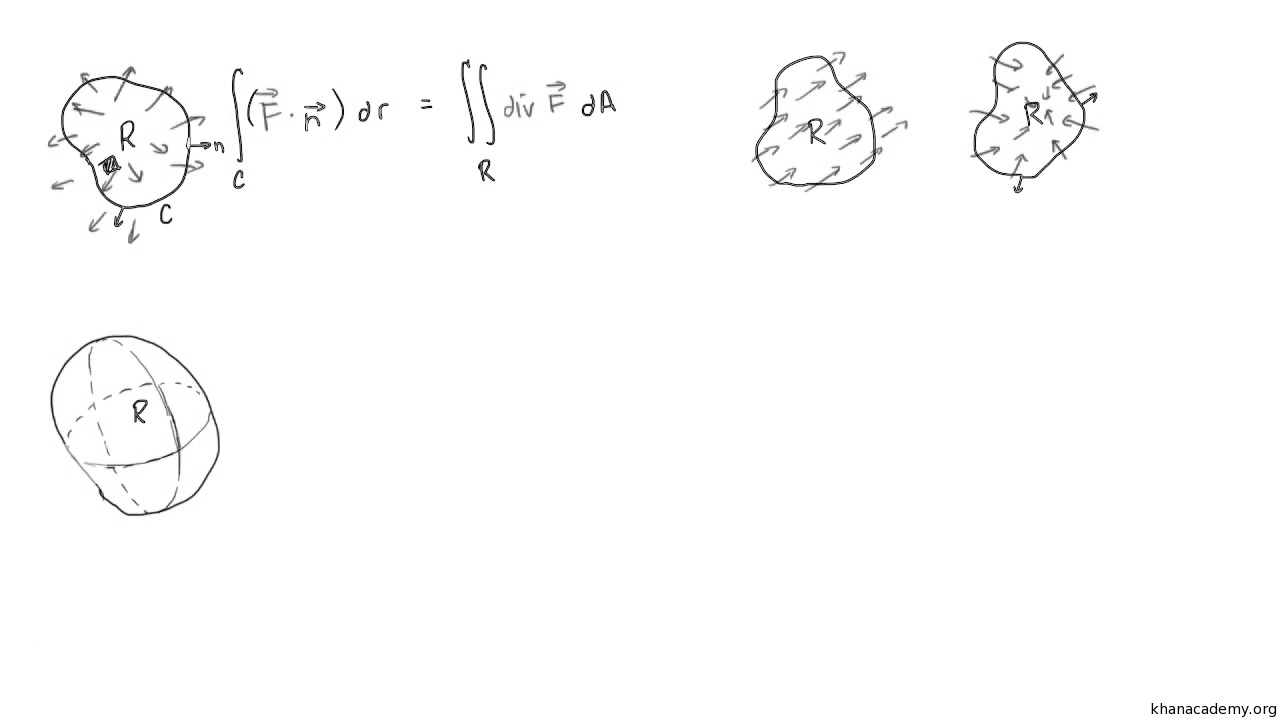 R
n
C
∫ (F⃗ · n⃗) dr = ∫∫ div F⃗ dA
C
R
R
R
R
khanacademy.org